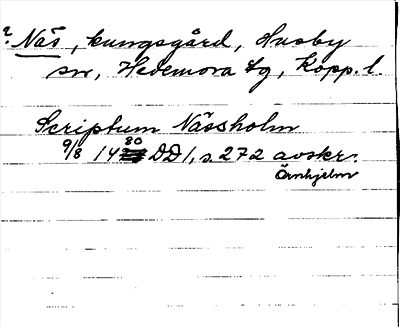 ? Näs, kungsgård, Husby
sn, Hedemora tg, Kopp. l.
Scriptum Nässholm
9/8 1430 DD 1, s. 272 avskr.
Örnhjelm